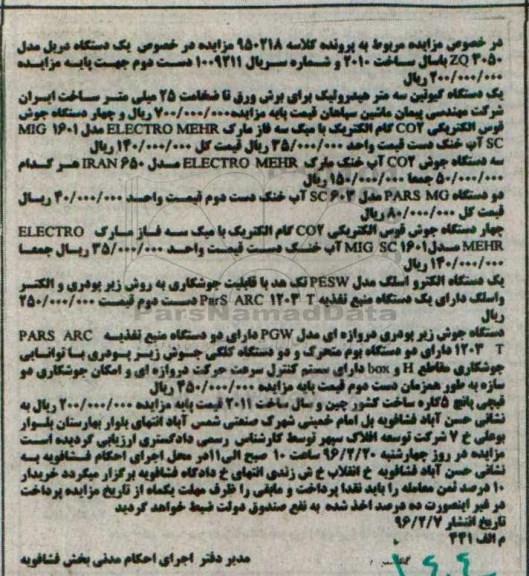 در خصوص مزایده مربوط به پرونده کلاسه ۹۵۰۲۱۸ مزایده در خصوص یک دستگاه دریل مدل
ZQ ۳۰۵۰ باسال ساخت ۲۰۱۰ و شماره سریال ۱۰۰۹۲۱۱ دست دوم جهت پایه مزایده
۲۰۰/۰۰۰/۰۰۰ ریال
یک دستگاه گیوتین سه متر هیدرولیک برای برش ورق تا ضخامت ۲۵ میلی متر ساخت ایران
شرکت مهندسی پیمان ماشین سپاهان قیمت پایه مزایده۷۰۰/۰۰۰/۰۰۰ ریال و چهار دستگاه جوش
قوس الکتریکی CO۲ گام الکتریک با میک سه فاز مارک ELECTRO MEHR مدل MIG ۱۶۰۱
SC آب خنک دست قیمت واحد ۳۵/۰۰۰/۰۰۰ ریال قیمت کل ۱۴۰/۰۰۰/۰۰۰ ریال
سه دستگاه جوش CO۲ آب خنک مارک ELECTRO MEHR مدل IRAN ۶۵۰ هر کدام
۵۰/۰۰۰/۰۰۰ جمعا ۱۵۰/۰۰۰/۰۰۰ ریال
دو دستگاه PARS MG مدل SC ۶۰۳ آب خنک دست دوم قیمت واحد ۴۰/۰۰۰/۰۰۰ ریال
قیمت کل ۸۰/۰۰۰/۰۰۰ ریال
چهار دستگاه جوش قوس الکتریکی CO۲ گام الکتریک با میک سه فاز مارک ELECTRO
MEHR مدل MIG SC ۱۶۰۱ آب خنک دست قیمت واحد ۳۵/۰۰۰/۰۰۰ ریال جمعا
۱۴۰/۰۰۰/۰۰۰ ریال
یک دستگاه الکترو اسلگ مدل PESW تک هد با قابلیت جوشکاری به روش زیر پودری و الکتر
واسلگ دارای یک دستگاه منبع تغذیه ParS ARC ۱۲۰۳ T دست دوم قیمت ۲۵۰/۰۰۰/۰۰۰
ریال
دستگاه جوش زیر پودری دروازه ای مدل PGW دارای دو دستگاه منبع تغذیه PARS ARC
۱۲۰۳ T دارای دو دستگاه بوم متحرک و دو دستگاه کلگی جوش زیر پودری با توانایی
جوشکاری مقاطع H و box دارای سستم کنترل سرعت حرکت دروازه ای و امکان جوشکاری دو
سازه به طور همزمان دست دوم قیمت پایه مزایده ۴۵۰/۰۰۰/۰۰۰ ریال
قیچی پانچ ۵کاره ساخت کشور چین و سال ساخت ۲۰۱۱ قیمت پایه مزایده ۲۰۰/۰۰۰/۰۰۰ ریال به
نشانی حسن آباد فشافویه پل امام خمینی شهرک صنعتی شمس آباد انتهای بلوار بهارستان بلوار
بوعلی خ ۷ شرکت توسعه افلاک سپهر توسط کارشناس رسمی دادگستری ارزیابی گردیده است
مزایده در روز چهارشنبه ۹۶/۲/۲۰ ساعت ۱۰ صبح الی۱۱در محل اجرای احکام فشافویه به
نشانی حسن آباد فشافویه خ انقلاب خ ش زندی انتهای خ دادگاه فشافویه برگزار میگردد خریدار
۱۰ درصد ثمن معامله را باید نقدا پرداخت و مابقی را ظرف مهلت یکماه از تاریخ مزایده پرداخت
در غیر اینصورت ده درصد اخذ شده به نفع صندوق دولت ضبط خواهد گردید
تاریخ انتشار ۹۶/۲/۷
م الف ۴۳۱
مدیر دفتر اجرای احکام مدنی بخش فشافویه
ParsNamadData